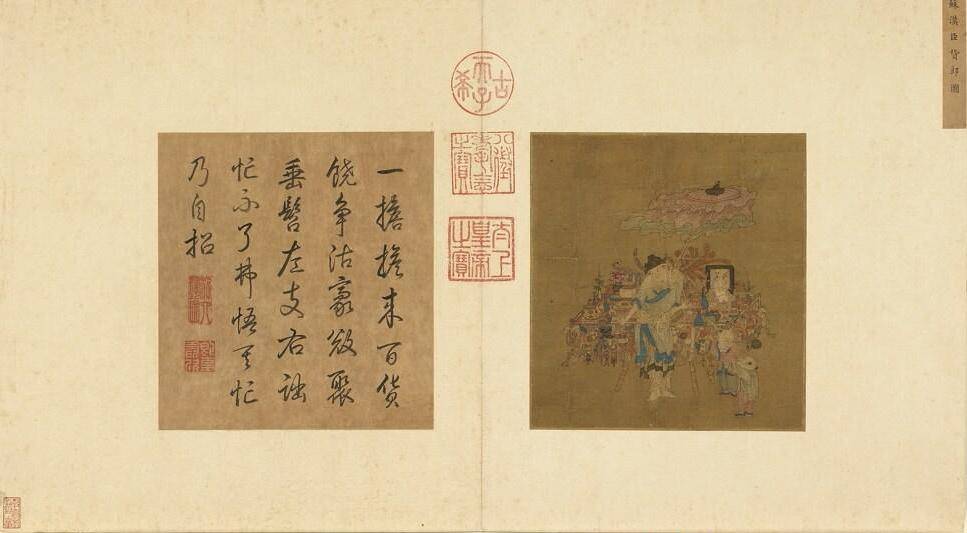 蘇漢臣貨郎圖
古希天子
八徵耄念之寶
太上皇帝之寶
一擔擔來百貨
饒爭沽聚
垂髫左支右詘
忙不了弗悟其忙
乃自招